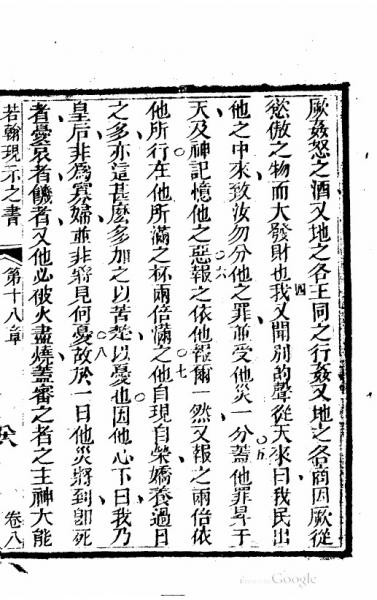 厥姦怒之酒又地之各王同之行姦又地之各商因厥從
慾傲之物而大發財也我又聞別的聲從天來曰我民出
四
他之中來致汝勿分他之罪並受他災一分蓋他罪昇于
五
天及神記憶他之惡報之依他報爾一然又報之兩倍依
六
他所行在他所滿之杯兩倍滿之他自現自榮嬌養過日
七
之多亦這甚麼多加之以苦楚以憂也因他心下曰我乃
皇后非為寡婦並非將見何憂故於一日他災將到即死
八
者憂哀者饑者又他必被火盡燒蓋審之者之主神大能
若翰現示之書
第十八章
卷八
Google